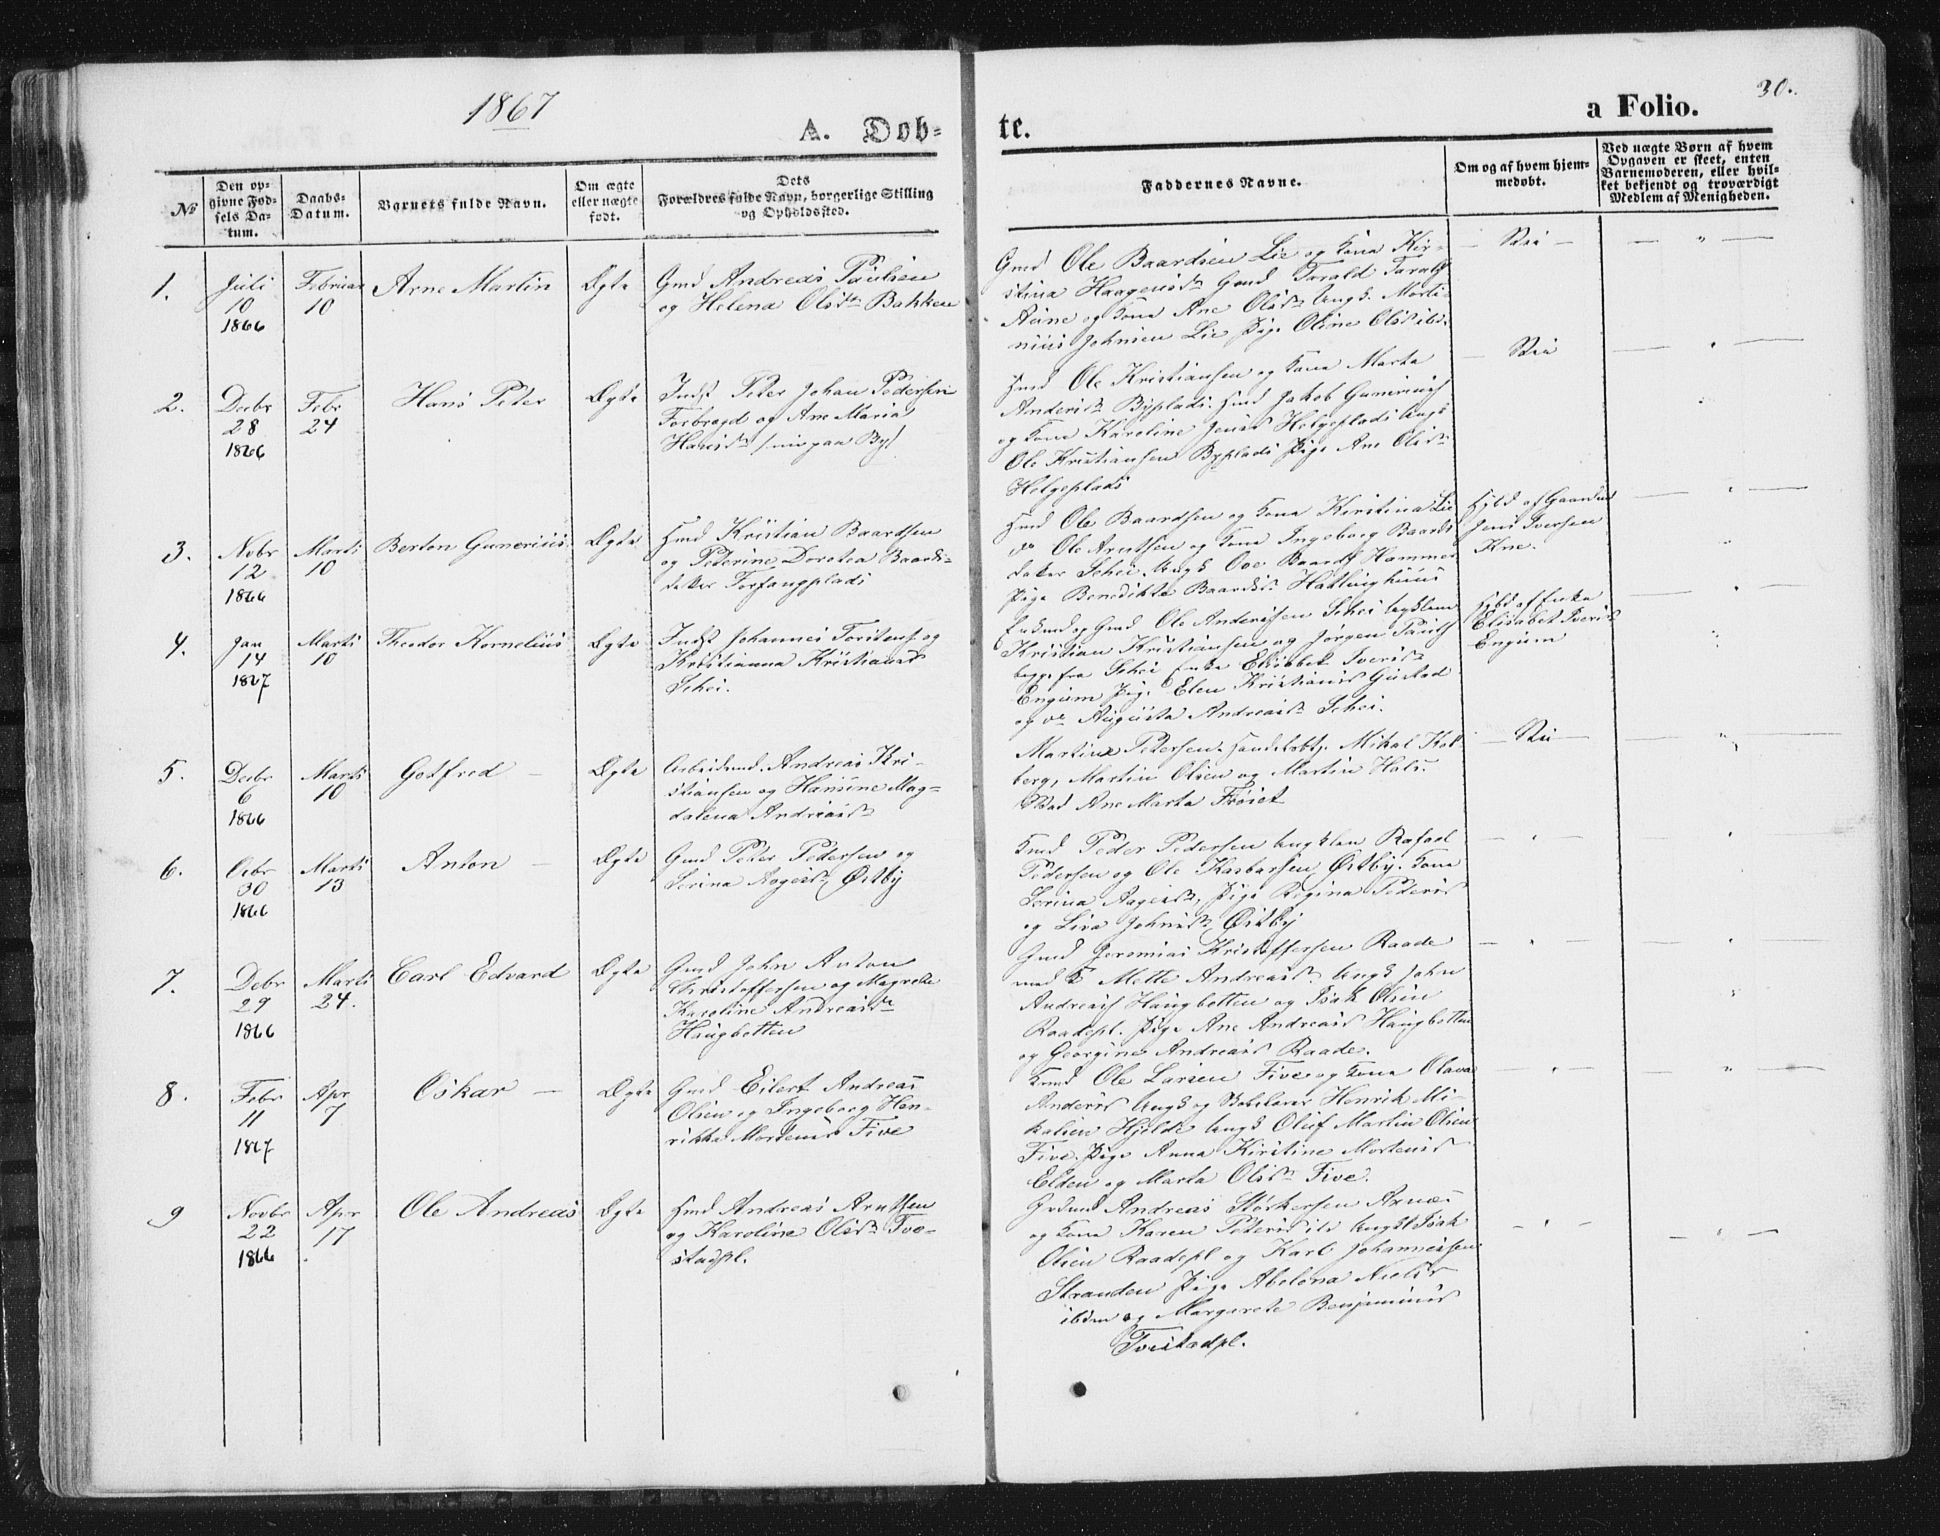 1867
30.
A. Døb-
te.
a Folio.
No
Den op-
givne Fød-
sels Da-
tum.
Daabs-
Datum.
Barnets fulde Navn.
Om ægte
eller uægte
født.
Dets
Forældres fulde Navn, borgerlige Stilling
og Opholdssted.
Faddernes Navne.
Om og af hvem hjem-
medøbt.
Ved uægte Børn af hvem
Opgaven er skeet, enten
Barnemoderen, eller hvil-
ket bekjendt og troværdigt
Medlem af Menigheden.
1.
Juli
10
1866
Februar
10
Arne Martin
Ægte
Gmd Andreas Paulsen
og Helena Olsdtr Bakken
Gmd Ole Baardsen Lie og Kona Kir-
stina Haagensdtr Gmd Tarald Taralds
Aune og Kona Ane Olsdtr Ungk. Morti-
nus Johnsen Lie Pige Oline Olsd ibd.
2.
Decbr
28
1866
Febr
24
Hans Peter
Ægte
Indst Peter Johan Pedersen
Forbregd og Ane Maria
Hansdtr (nu paa By)
Hmd Ole Kristiansen og Kona Marta
Andersdtr Byplads. Hmd Jakob Gunerius
og Kona Karoline Jensd Helgeplads Ungk
Ole Kristiansen Byplads Pige Ane Olsdtr
Helgeplads
3.
Nobr
12
1866
Marts
10
Berton Gunerius
Ægte
Hmd Kristian Baardsen
og Peterine Dorotea Baards-
datter Forfangplads
Hmd Ole Baardsen og Kona Kirstina Lie
do Ole Arntsen og Kona Ingeborg Baards
datter Schei. Ungk Ove Baards Hammer
Pige Benedikte Baardsd. Hattinghuus
Hjbd af Gaardmd
Jens Iversen
Kne.
4.
Jan
14
1867
Marts
10
Theodor Kornelius
Ægte
Indst Johannes Torstens. og
Kristianna Kristiansd
Schei.
Enkmd og Gmd Ole Anderssen Schei Ungklene
Kristian Kristiansen og Jørgen Pauls
begge fra Schei Enke Elisabet Iversdtr
Engum Pige Elen Kristiansd Gustad
og do Augusta Andreasdtr Schei.
Hjbd af Enke
Elisabet Iversd
Engum
5.
Decbr
6
1866
Marts
10
Gotfred
Ægte
Arbeidsmd. Andreas Kri-
stiansen og Hansine Mag-
dalena Andreasdtr
Martin Petersen Handelsbtj. Mikal Kol-
berg, Martin Olsen og Martin Hals.
Mad Ane Marta Frøset
6.
30
1866
Marts
13
Anton
Ægte
Gmd Peter Pedersen og
Serina Aagesdtr Østby
Kmd Peder Pedersen Ungklen Rafael
Pedersen og Ole Kasbarsen Østby. Kona
Serina Aagesdtr, Pige Regina Pedersd
og Liva Johnsdtr Østby
7.
Debr
29
1866
Marts
24.
Carl Edvard
Ægte
Gmd John Anton
Christoffersen og Magrete
Karoline Andreasdtr
Haugbotten
Gmd Jeremias Kristoffersen Raade
med K Mette Andreasd. Ungk John
Andreass Haugbotten og Isak Olsen
Raadepl. Pige Ane Andreasd Haugbotten
og Georgine Andreasd Raade.
8.
Febr
11
1867
Apr
7
Oskar
Ægte
Gmd Eilert Andreas
Olsen og Ingeborg Hen-
rikka Mortensd Five
Kmd Ole Larsen Five og Kona Olava
Andersd Ungk og Skolelærer Henrik Mi-
kalsen Hjelde Ungk Oluf Martin Olsen
Five. Pige Anna Kirstine Mortensd
Elden og Marta Olsdtr Five.
9
Novbr
22
1866
Apr
17
Ole Andreas
Ægte
Hmd Andreas Arntsen
og Karoline Olsdtr Tve-
stadpl.
Grdmd Andreas Størkersen Axnæs
og Kona Karen Petersd ibd Ungk Isak
Olsen Raadepl og Karl Johannessen
Stranden Pige Abelona Nielsd
ibdm og Margarete Benjaminsd
Tvestadpl.